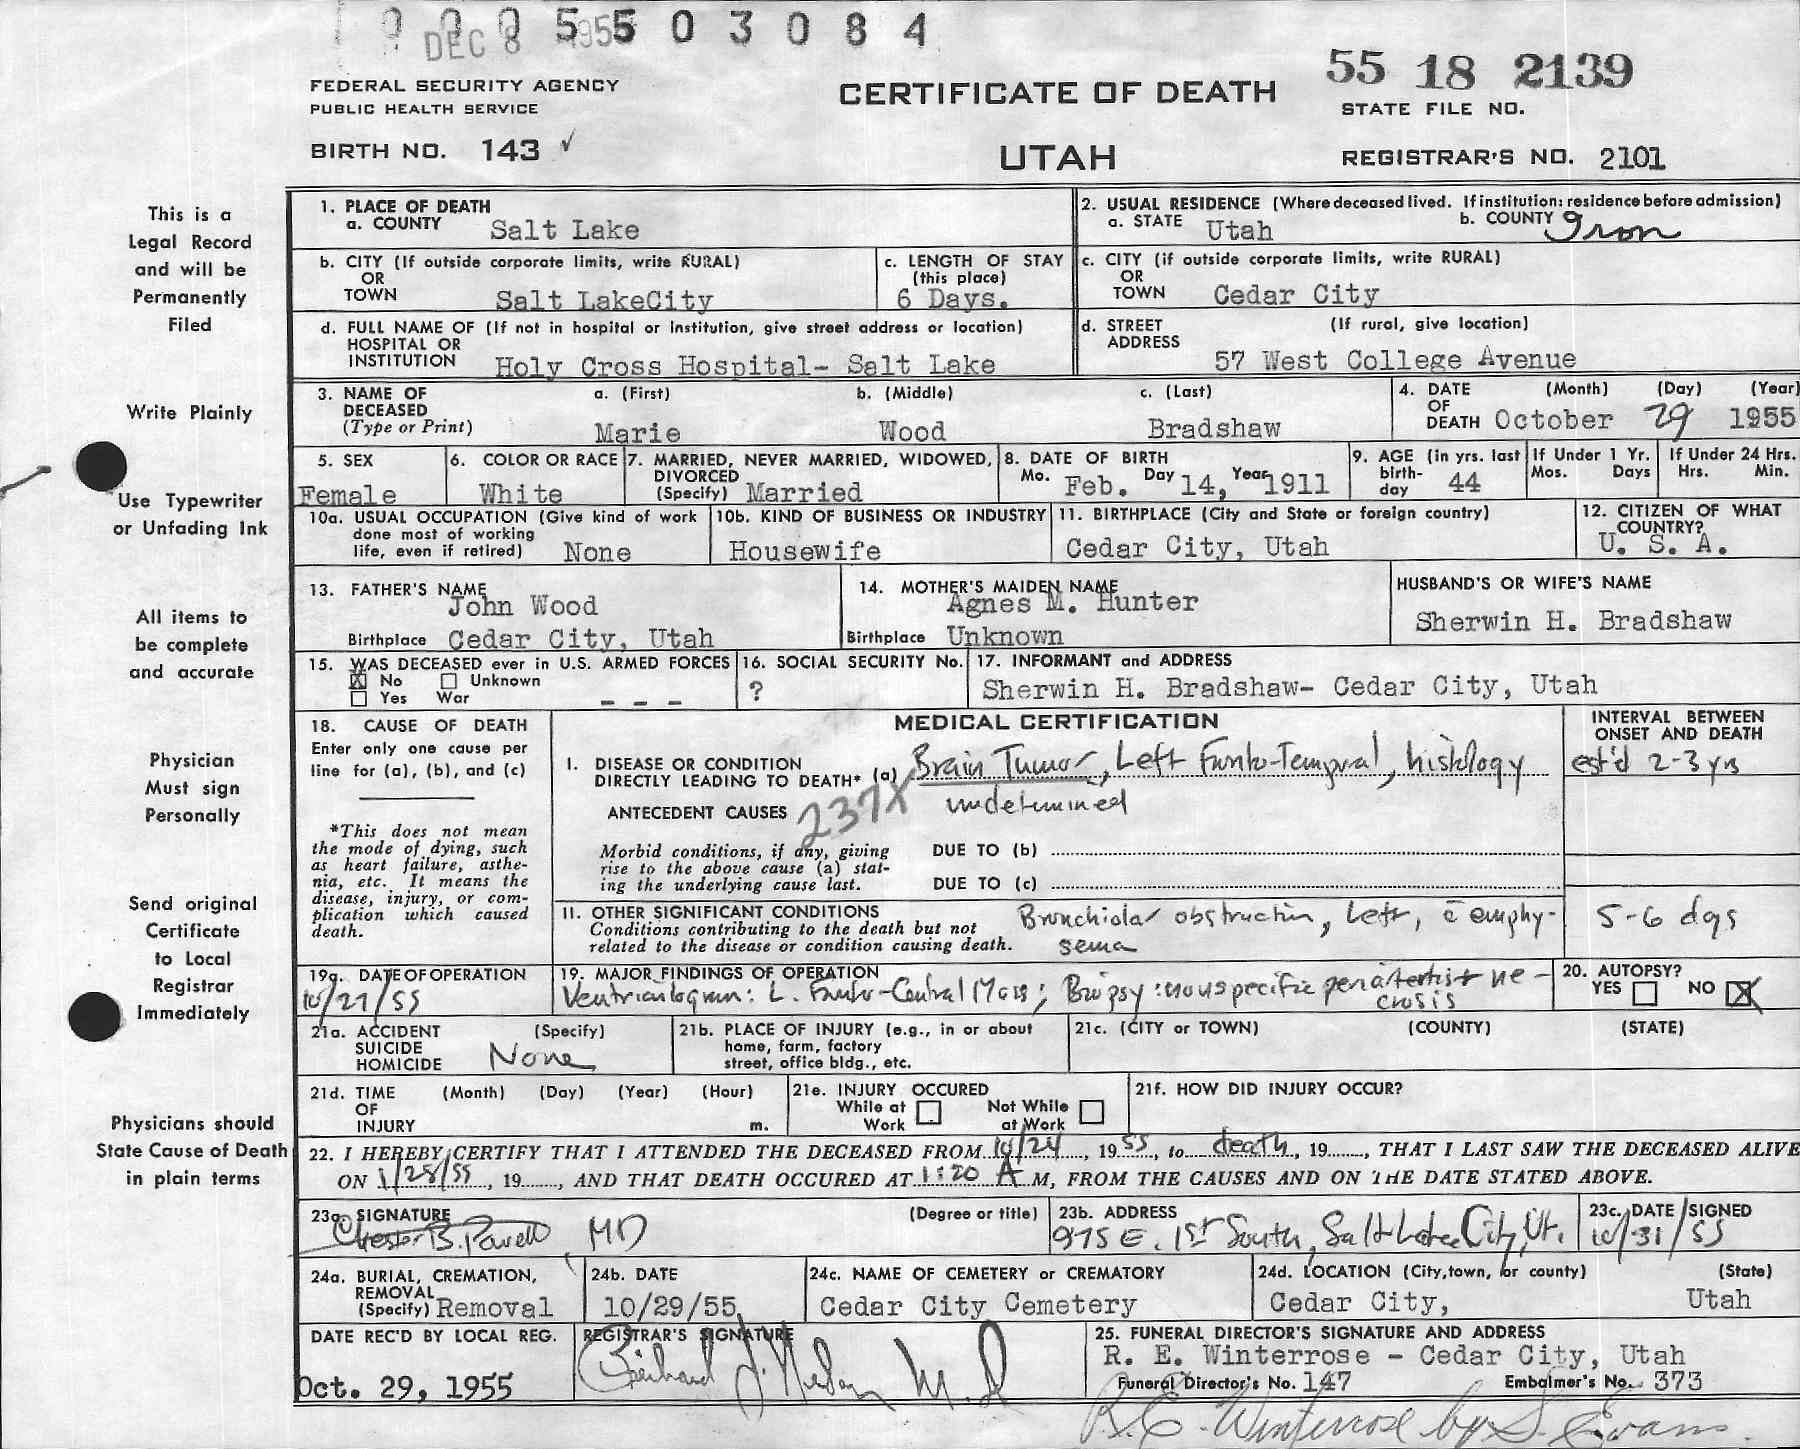 0 0 0 5 5 0 3 0 8 4
DEC 8 1955
FEDERAL SECURITY AGENCY
PUBLIC HEALTH SERVICE
BIRTH NO. 143 ✓
CERTIFICATE OF DEATH
UTAH
55 18 2139
STATE FILE NO.
REGISTRAR'S NO. 2101
This is a
Legal Record
and will be
Permanently
Filed
Write Plainly
Use Typewriter
or Unfading Ink
All items to
be complete
and accurate
Physician
Must sign
Personally
Send original
Certificate
to Local
Registrar
Immediately
Physicians should
State Cause of Death
in plain terms
1. PLACE OF DEATH
a. COUNTY Salt Lake
2. USUAL RESIDENCE (Where deceased lived. If institution: residence before admission)
a. STATE Utah b. COUNTY Iron
b. CITY (If outside corporate limits, write RURAL)
OR
TOWN Salt LakeCity
c. LENGTH OF STAY
(this place)
6 Days.
c. CITY (if outside corporate limits, write RURAL)
OR
TOWN Cedar City
d. FULL NAME OF (If not in hospital or institution, give street address or location)
HOSPITAL OR
INSTITUTION Holy Cross Hospital- Salt Lake
d. STREET (If rural, give location)
ADDRESS
57 West College Avenue
3. NAME OF a. (First) b. (Middle) c. (Last)
DECEASED
(Type or Print) Marie Wood Bradshaw
4. DATE (Month) (Day) (Year)
OF
DEATH October 29 1955
5. SEX
Female
6. COLOR OR RACE
White
7. MARRIED, NEVER MARRIED, WIDOWED,
DIVORCED
(Specify) Married
8. DATE OF BIRTH
Mo. Feb. Day 14, Year 1911
9. AGE (in yrs. last
birth-
day 44
If Under 1 Yr.
Mos. Days
If Under 24 Hrs.
Hrs. Min.
10a. USUAL OCCUPATION (Give kind of work
done most of working
life, even if retired) None
10b. KIND OF BUSINESS OR INDUSTRY
Housewife
11. BIRTHPLACE (City and State or foreign country)
Cedar City, Utah
12. CITIZEN OF WHAT
COUNTRY?
U. S. A.
13. FATHER'S NAME
John Wood
Birthplace Cedar City, Utah
14. MOTHER'S MAIDEN NAME
Agnes M. Hunter
Birthplace Unknown
HUSBAND'S OR WIFE'S NAME
Sherwin H. Bradshaw
15. WAS DECEASED ever in U.S. ARMED FORCES
☒ No ☐ Unknown
☐ Yes War - - -
16. SOCIAL SECURITY No.
?
17. INFORMANT and ADDRESS
Sherwin H. Bradshaw- Cedar City, Utah
18. CAUSE OF DEATH
Enter only one cause per
line for (a), (b), and (c)
*This does not mean
the mode of dying, such
as heart failure, asthe-
nia, etc. It means the
disease, injury, or com-
plication which caused
death.
MEDICAL CERTIFICATION
INTERVAL BETWEEN
ONSET AND DEATH
I. DISEASE OR CONDITION
DIRECTLY LEADING TO DEATH* (a) Brain Tumor, Left Fronto-Temporal, histology
est'd 2-3 yrs
ANTECEDENT CAUSES 237X undetermined
Morbid conditions, if any, giving
rise to the above cause (a) stat-
ing the underlying cause last.
DUE TO (b)
DUE TO (c)
II. OTHER SIGNIFICANT CONDITIONS
Conditions contributing to the death but not
related to the disease or condition causing death.
Bronchiolar obstruction, Left, c̄ emphy-
sema
5-6 dys
19a. DATE OF OPERATION
10/27/55
19. MAJOR FINDINGS OF OPERATION
Ventriculogram: L. Fronto-Central Mass; Biopsy: nonspecific ne-
crosis
20. AUTOPSY?
YES ☐ NO ☒
21a. ACCIDENT (Specify)
SUICIDE
HOMICIDE None
21b. PLACE OF INJURY (e.g., in or about
home, farm, factory
street, office bldg., etc.
21c. (CITY or TOWN) (COUNTY) (STATE)
21d. TIME (Month) (Day) (Year) (Hour)
OF
INJURY m.
21e. INJURY OCCURED
While at Work ☐ Not While at Work ☐
21f. HOW DID INJURY OCCUR?
22. I HEREBY CERTIFY THAT I ATTENDED THE DECEASED FROM 10/24, 1955, to death, 19....., THAT I LAST SAW THE DECEASED ALIVE
ON 1/28/55, 19....., AND THAT DEATH OCCURED AT 1:20 A M, FROM THE CAUSES AND ON THE DATE STATED ABOVE.
23a. SIGNATURE (Degree or title)
Chester B. Powell, MD
23b. ADDRESS
975 E. 1st South, Salt Lake City, Ut.
23c. DATE SIGNED
10/31/55
24a. BURIAL, CREMATION,
REMOVAL
(Specify) Removal
24b. DATE
10/29/55
24c. NAME OF CEMETERY or CREMATORY
Cedar City Cemetery
24d. LOCATION (City, town, or county) (State)
Cedar City, Utah
DATE REC'D BY LOCAL REG.
Oct. 29, 1955
REGISTRAR'S SIGNATURE
M.D
25. FUNERAL DIRECTOR'S SIGNATURE AND ADDRESS
R. E. Winterrose - Cedar City, Utah
Funeral Director's No. 147 Embalmer's No. 373
R. E. Winterrose by S. Evans